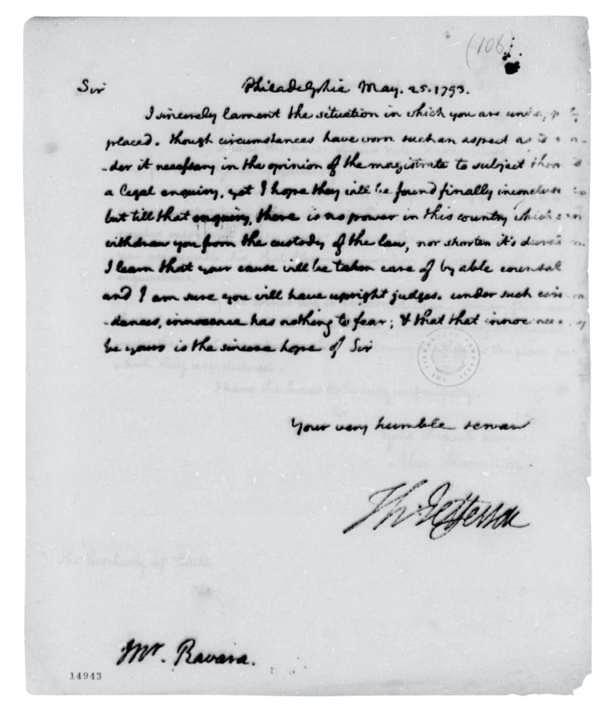 (106)
Sir Philadelphia May. 25. 1793.
I sincerely lament the situation in which you are
placed. though circumstances have worn such an aspect as to
-der it necessary in the opinion of the magistrate to subject them to
a legal enquiry, yet I hope they will be found finally inconclusive
but till that enquiry, there is no power in this country which can
withdraw you from the custody of the law, nor shorten it's
I learn that your cause will be taken care of by able counsel
and I am sure you will have upright judges. under such
-stances, innocence has nothing to fear; & that that innocence may
be yours is the sincere hope of Sir
Your very humble servant
Th: Jefferson
Mr. Ravara.
14943